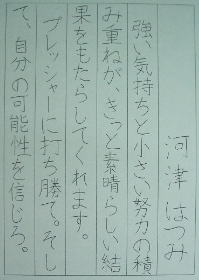 河津はつみ
強い気持ちと小さい努力の積
み重ねが、きっと素晴らしい結
果をもたらしてくれます。
プレッシャーに打ち勝て。そし
て、自分の可能性を信じろ。